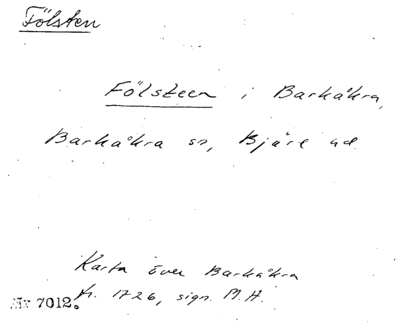 Fölsten
Fölsteen i Barkåkra,
Barkåkra sn, Bjäre hd.
Karta över Barkåkra
fr. 1726, sign. M.H.
Nr 7012.